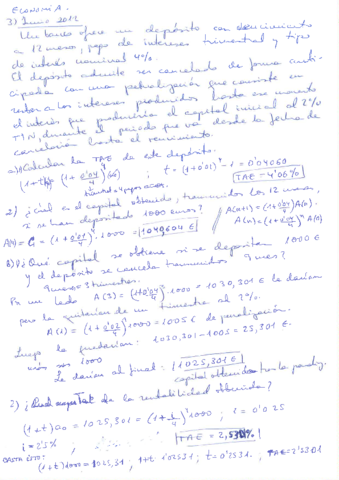 ECONOMÍA.
3) Junio 2012
Un banco ofrece un depósito con vencimiento
a 12 meses, pago de intereses trimestral y tipo
de interés nominal 4%.
El depósito admite ser cancelado de forma anti-
cipada con una penalización que consiste en
restar a los intereses producidos hasta ese momento
el interés que produciría el capital inicial al 2%
TIN, durante el periodo que va desde la fecha de
cancelación hasta el vencimiento.
a) Calcular la TAE de este depósito.
(1+0'04/4)⁴ ; t = (1+0'01)⁴ - 1 = 0'04060
trimestral = 4 pagos TAE = 4'06%
2) ¿Cuál es el capital obtenido, transcurridos los 12 meses,
si se han depositado 1000 euros? A(n+1) = (1+0'04/4) A(n).
A(4) = C = (1+0'04/4)⁴ · 1000 = 1040,604 € A(n) = (1+0'04/4)ⁿ A(0)
3) ¿Qué capital se obtiene si se depositan 1000 €
y el depósito se cancela transcurridos 9 meses?
9 meses = 3 trimestres.
Por un lado A(3) = (1+0'04/4)³ 1000 = 1030,301 € le darían
pero le quitarían de un trimestre al 2%.
A(1) = (1+0'02/4) 1000 = 1005 € de penalización.
Luego le quedarían: 1030,301 - 1005 = 25,301 €.
más los 1000
Le darían al final: 1025,301 €
capital obtenido tras la penaliz.
2) ¿Cuál es la TAE de la rentabilidad obtenida?
(1+t) a₀ = 1025,301 = (1+i/4)⁴ 1000 ; i = 0'025
i = 2'5% TAE = 2,5301%
(1+t) 1000 = 1025,31 , 1+t = 1'02531 ; t = 0'02531. , TAE = 2'5301